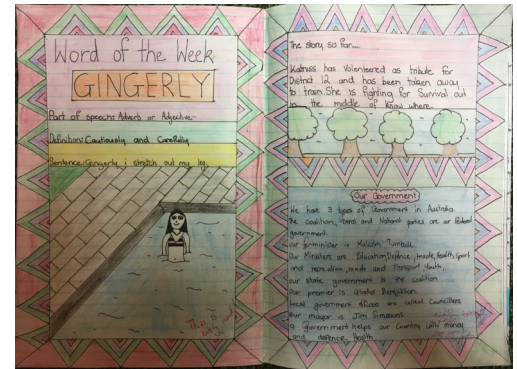 Word of the Week
GINGERLY
Part of speech: Adverb or Adjective
Definition: Cautiously and Carefully
Sentence: Gingerly i stretch out my leg.
The story so far....
Katniss has Volenteered as tribute for
District 12 and has been taken away
to train. She is fighting for Survival out
in the middle of know where.
Our Government
We have 3 types of Government in Australia.
The coalition, liberal and National parties are our Federal
government.
our is Malcolm Turnbull
Our Ministers are Education, Defence, trade, Health, Sport
and recreation, roads and transport, Youth,
our state government is the coalition
Our premier is Berejiklian
local government are called Councillers
Our mayor is Jim
a government helps our Country with money
and defence, Health